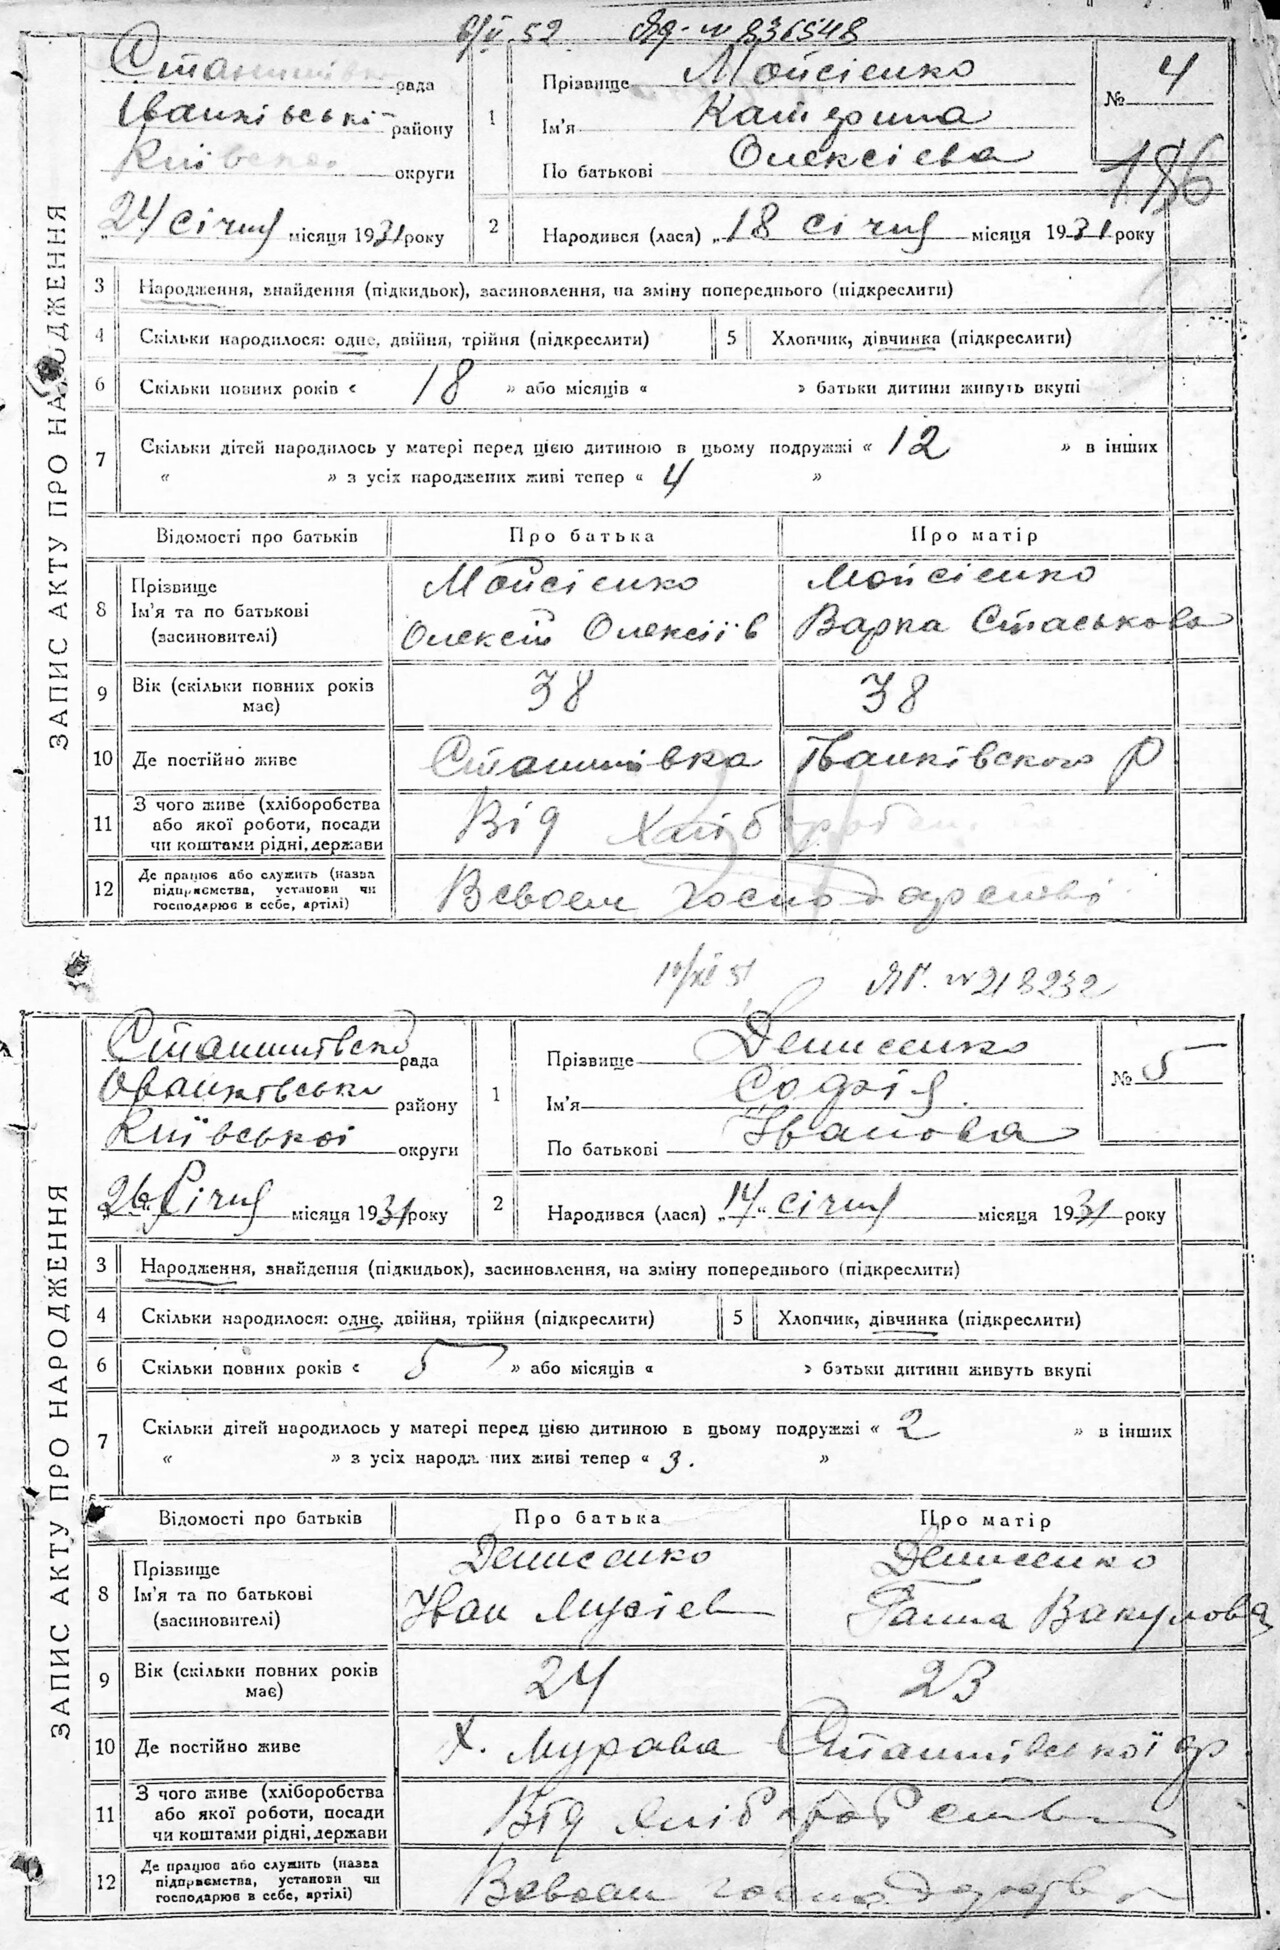 6/V 52 Яд. № 836548
ЗАПИС АКТУ ПРО НАРОДЖЕННЯ
рада
Іванківські району
Київсько округи
„24 січня місяця 1931 року
1
Прізвище Мойсієнко
Ім'я Катерина
По батькові Олексієва
№ 4
186
2
Народився (лася) „18 січня місяця 1931 року
3 Народження, знайдення (підкидьок), засиновлення, на зміну попереднього (підкреслити)
4 Скільки народилося: одне, двійня, трійня (підкреслити) 5 Хлопчик, дівчинка (підкреслити)
6 Скільки повних років « 18 » або місяців « » батьки дитини живуть вкупі
7 Скільки дітей народилось у матері перед цією дитиною в цьому подружжі « 12 » в інших
« » з усіх народжених живі тепер « 4 »
Відомості про батьків Про батька Про матір
8 Прізвище Ім'я та по батькові (засиновителі)
Мойсієнко Мойсієнко
Олексій Олексіїв Варка Стаськова
9 Вік (скільки повних років має) 38 38
10 Де постійно живе Сташиівка Іванківского Р
11 З чого живе (хліборобства або якої роботи, посади чи коштами рідні, держави Від
12 Де працює або служить (назва підприємства, установи чи господарює в себе, артілі) Всвоем господарстві
10/XII 51 ЯГ. № 218232
ЗАПИС АКТУ ПРО НАРОДЖЕННЯ
рада
району
Київської округи
„26 Січня місяця 1931 року
1
Прізвище Денисенко
Ім'я Софія
По батькові Іванова
№ 5
2
Народився (лася) „14 січня місяця 1931 року
3 Народження, знайдення (підкидьок), засиновлення, на зміну попереднього (підкреслити)
4 Скільки народилося: одне, двійня, трійня (підкреслити) 5 Хлопчик, дівчинка (підкреслити)
6 Скільки повних років « 5 » або місяців « » батьки дитини живуть вкупі
7 Скільки дітей народилось у матері перед цією дитиною в цьому подружжі « 2 » в інших
« » з усіх народжених живі тепер « 3. »
Відомості про батьків Про батька Про матір
8 Прізвище Ім'я та по батькові (засиновителі)
Денисенко Денисенко
Іван Мусієв Ганна Вакулова
9 Вік (скільки повних років має) 24 23
10 Де постійно живе Х. Мурава
11 З чого живе (хліборобства або якої роботи, посади чи коштами рідні, держави Від хліборобства
12 Де працює або служить (назва підприємства, установи чи господарює в себе, артілі) Всвоем